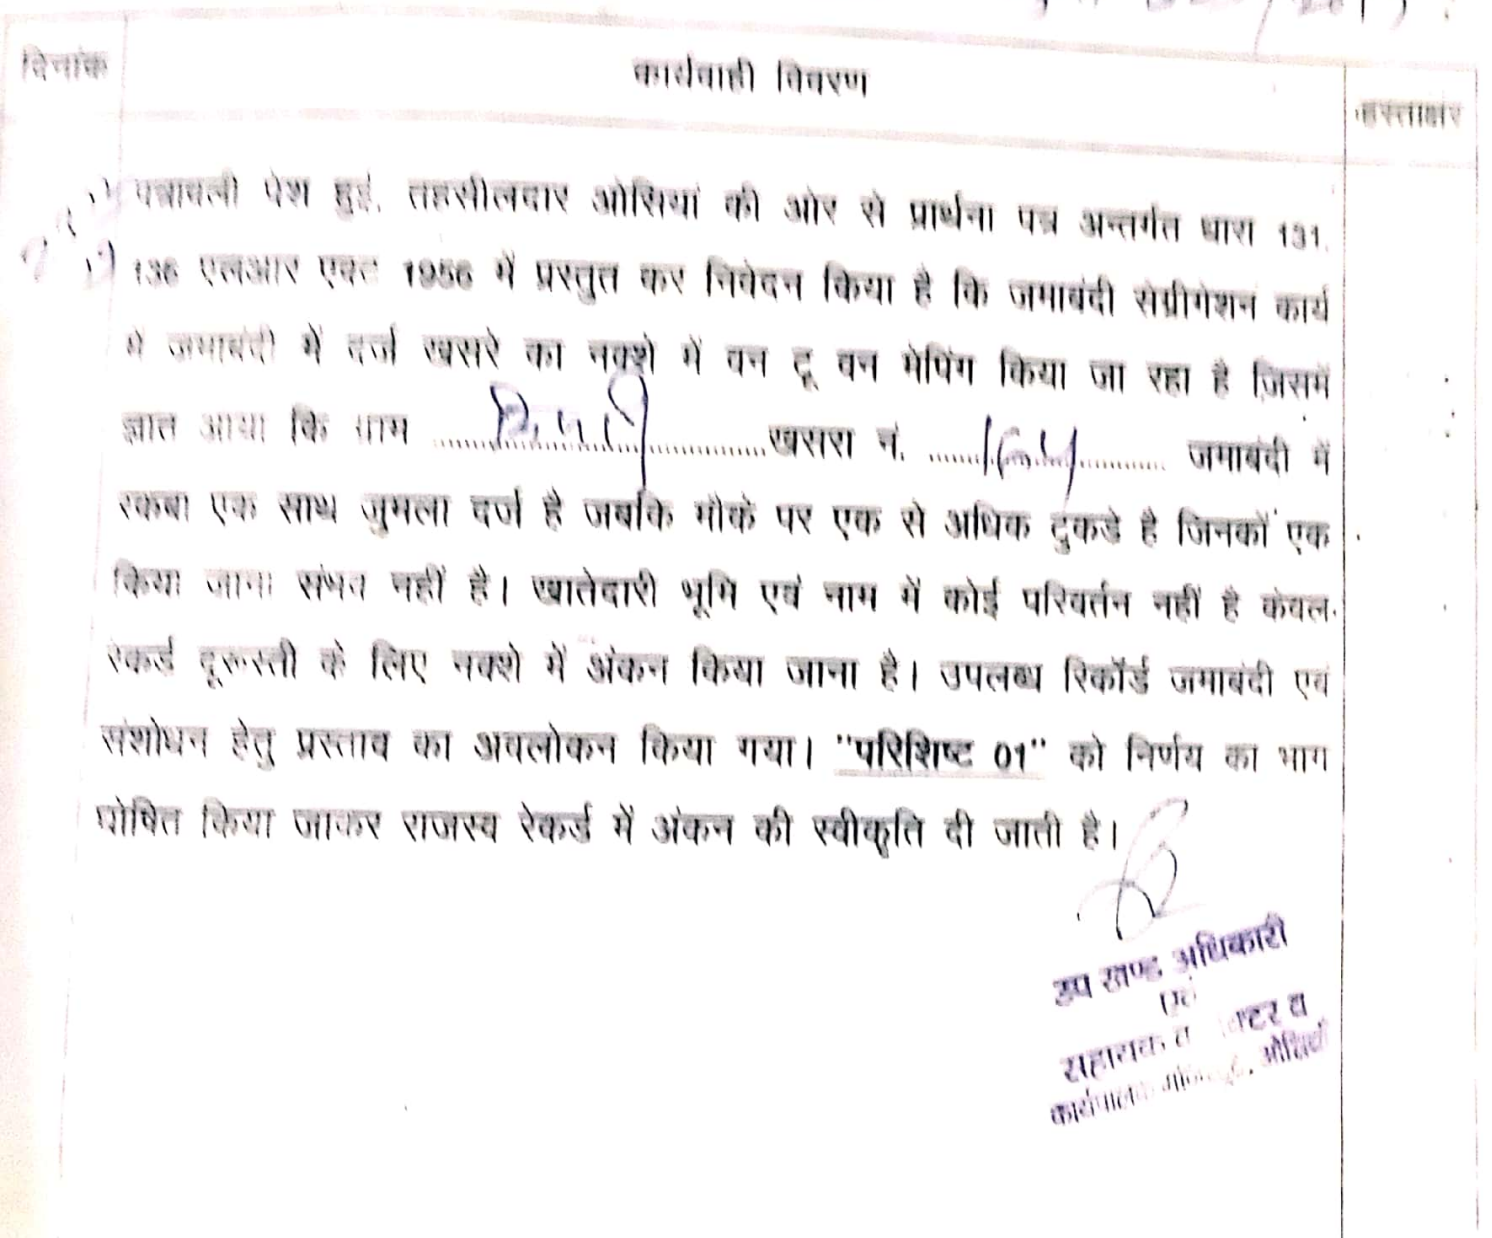 दिनांक
कार्यवाही विवरण
हस्ताक्षर
पत्रावली पेश हुई. तहसीलदार ओसियां की ओर से प्रार्थना पत्र अन्तर्गत धारा 131,
136 एलआर एक्ट 1956 में प्रस्तुत कर निवेदन किया है कि जमाबंदी सेग्रीगेशन कार्य
में जमाबंदी में दर्ज खसरे का नक्शे में वन टू वन मेपिंग किया जा रहा है जिसमें
ज्ञात आया कि ग्राम ........................ खसरा नं. ........164........ जमाबंदी में
रकबा एक साथ जुमला दर्ज है जबकि मौके पर एक से अधिक टुकडे है जिनकों एक
किया जाना संभव नहीं है। खातेदारी भूमि एवं नाम में कोई परिवर्तन नहीं है केवल
रेकर्ड दूरूस्ती के लिए नक्शे में अंकन किया जाना है। उपलब्ध रिकॉर्ड जमाबंदी एवं
संशोधन हेतु प्रस्ताव का अवलोकन किया गया। "परिशिष्ट 01" को निर्णय का भाग
घोषित किया जाकर राजस्व रेकर्ड में अंकन की स्वीकृति दी जाती है।
उप खण्ड अधिकारी
सहायक क टर व
कार्यपालक ओसियां